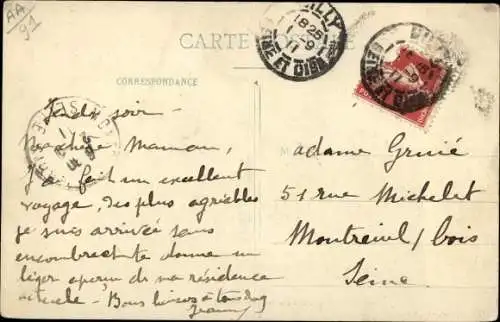 AA
91
CARTE POSTALE
CORRESPONDANCE
Jeudi soir
Ma chère Maman,
J'ai fait un excellent
voyage, des plus agréables
je suis arrivée sans
encombre et te donne un
léger aperçu de ma résidence
actuelle - Bons baisers à tous
Jeanne
Madame Gruié
51 rue Michelet
Montreuil s/ bois
Seine
18 25
1 - 9
11
SEINE ET OISE